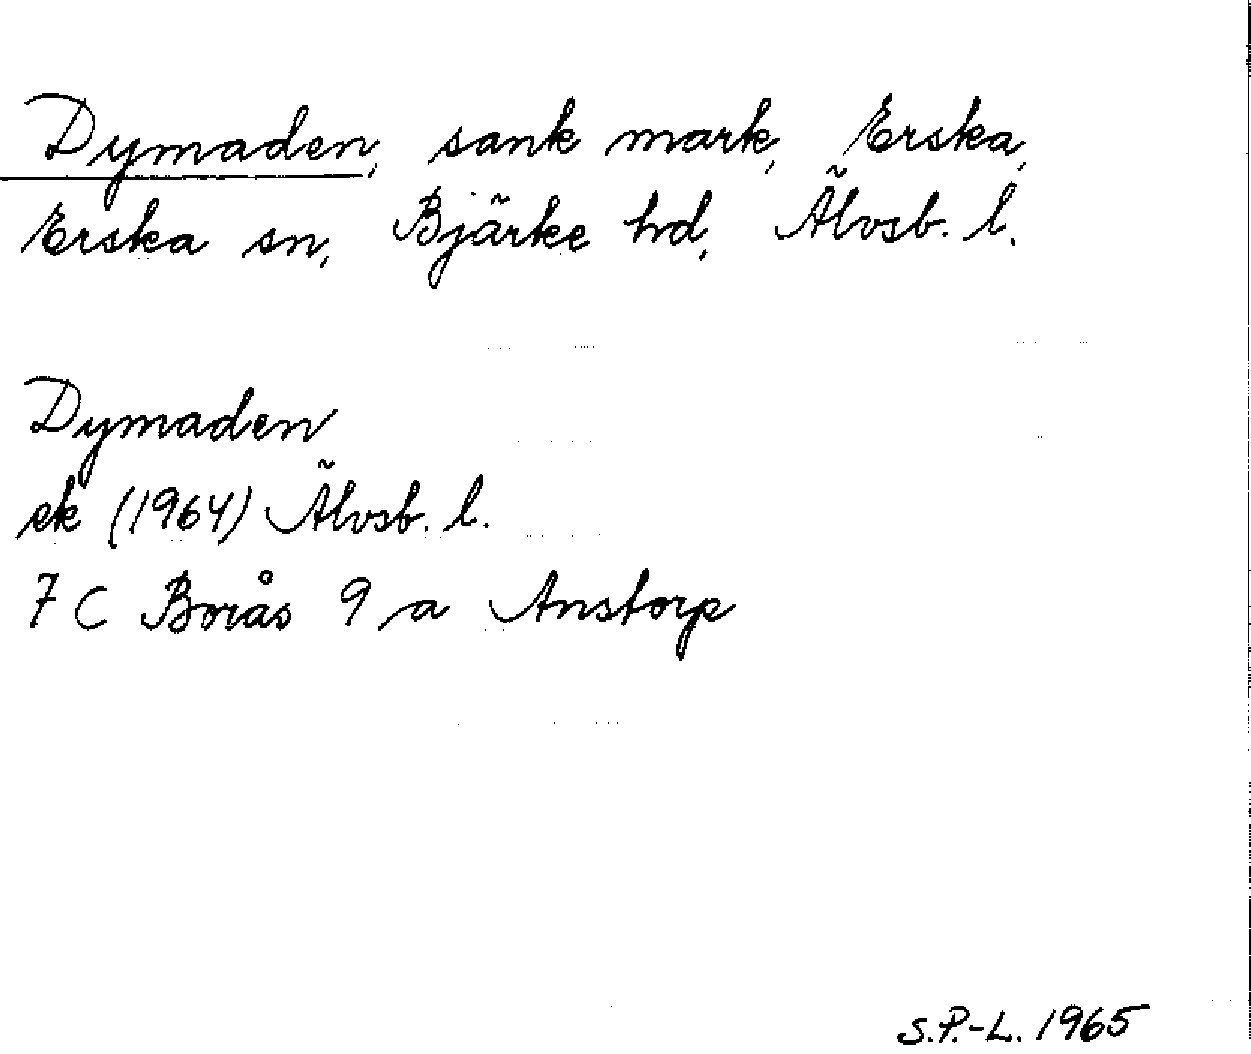 Dymaden, sank mark, Erska,
Erska sn, Bjärke hd, Älvsb. l.
Dymaden
ek (1964) Älvsb. l.
7 C Borås 9 a Anstorp
S.P.-L. 1965